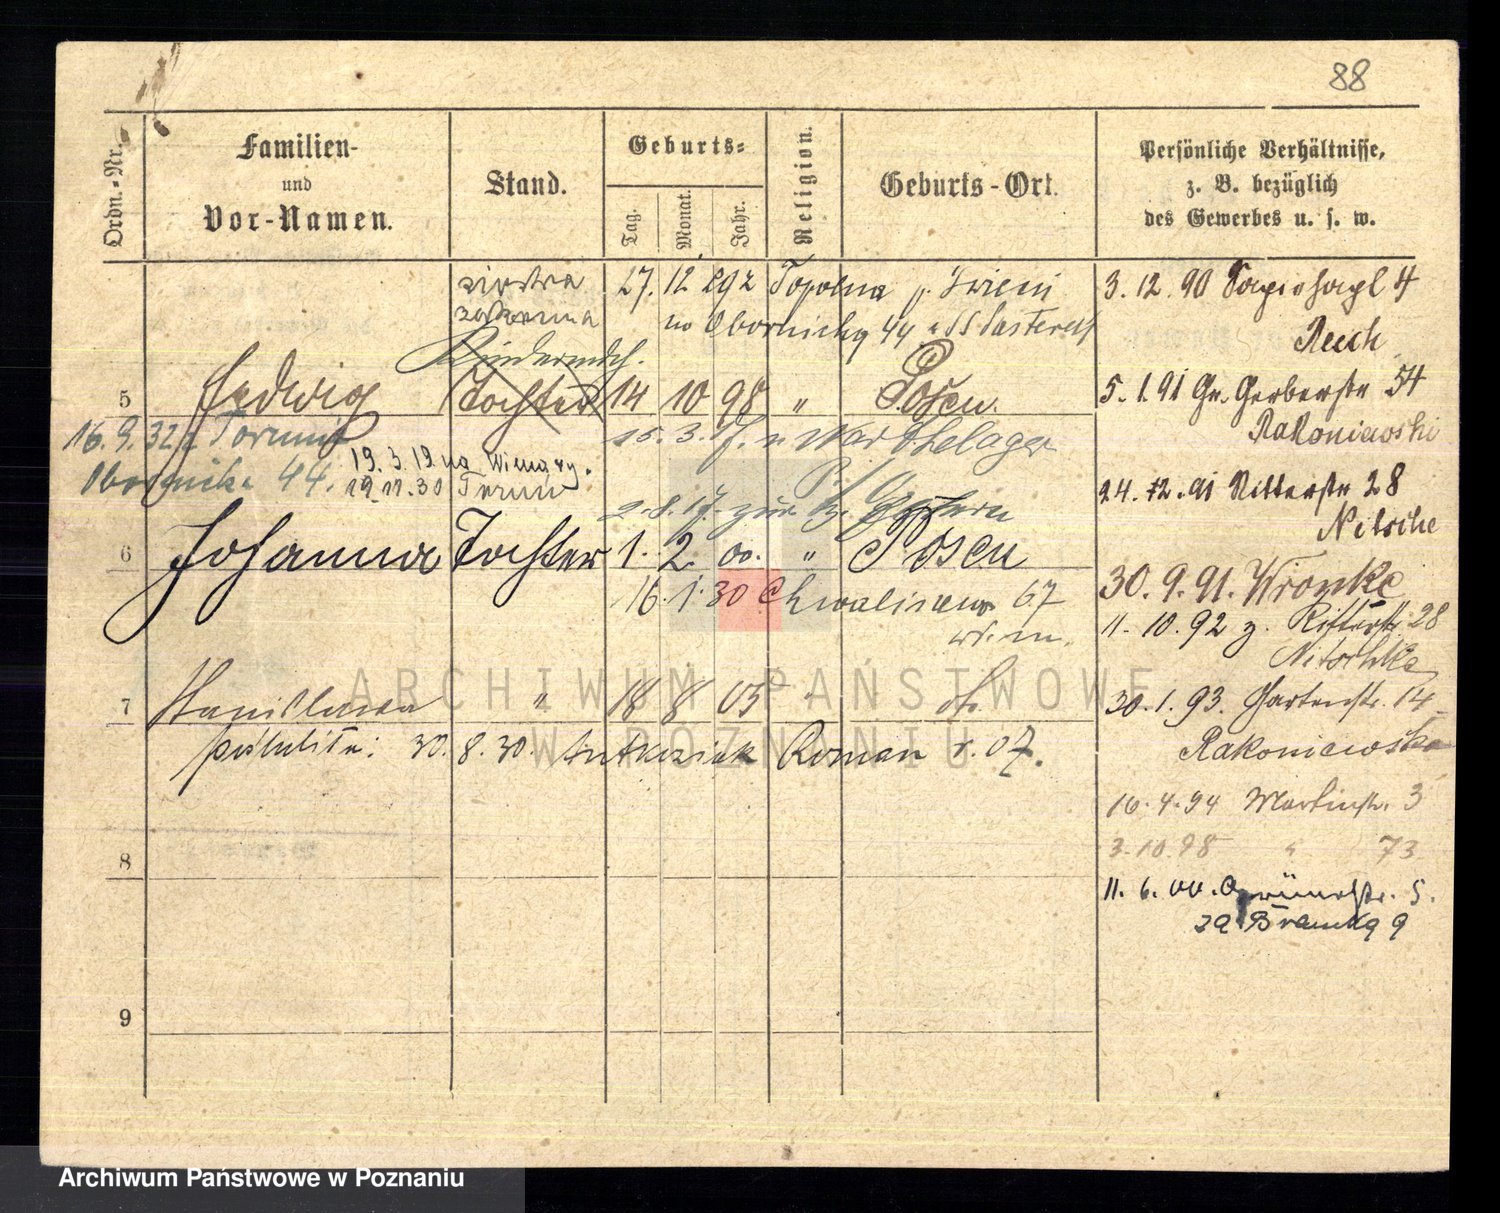 88
Ordn.-Nr.
Familien-
und
Vor-Namen.
Stand.
Geburts-
Tag.
Monat.
Jahr.
Religion.
Geburts-Ort.
Persönliche Verhältnisse,
z. B. bezüglich
des Gewerbes u. s. w.
siostra 27. 12. 192 Topolna p. Świeci
zakonna na Obornicką 44
Kindermdch.
5 Hedwig Tochter 14 10 98 " Posen.
16.9.32 z Torunia 15. 3. 17. n Warthelager
Obornicka 44. 19.3.19 na
19.11.30 Toruń
2.8.17. zur
6 Johanna Tochter 1. 2. 00. " Posen
16. 1. 30 Chwaliszewo 67
w. m.
7 Stanislawa " 18 8 05 " do.
poślubiła: 30. 8. 30. Antkowiak Roman r. 07.
8
9
3. 12. 90 Sapiehapl 4
Rech
5. 1. 91 Gr. Gerberstr 54
Rakoniewski
24. 12. 91 Ritterstr 28
Nitsche
30. 9. 91. Wronke
11. 10. 92 z. Ritterstr. 28
Nitschke
30. 1. 93. Gartenstr. 14
Rakoniewska
16. 4. 94 Martinstr. 3
3. 10. 98 " 73
11. 6. 00. Grünestr. 5.
za Bramką 9
ARCHIWUM PAŃSTWOWE
W POZNANIU
Archiwum Państwowe w Poznaniu